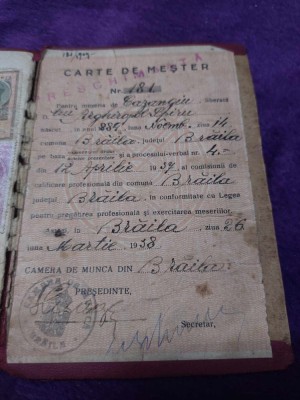 CARTE DE MEȘTER
Nr. 181
Pentru meseria de Cazangiu
născut în anul 889 luna Noemb. ziua 14
comuna Brăila județul Brăila
pe baza și a procesului-verbal nr. 4
12 Aprilie 1937 al comisiunii de
calificare profesională din comuna Brăila
județul Brăila, în conformitate cu Legea
pentru pregătirea profesională și exercitarea meseriilor.
Brăila ziua 26
luna Martie 1938
CAMERA DE MUNCA DIN Brăila
PREȘEDINTE,
Secretar,